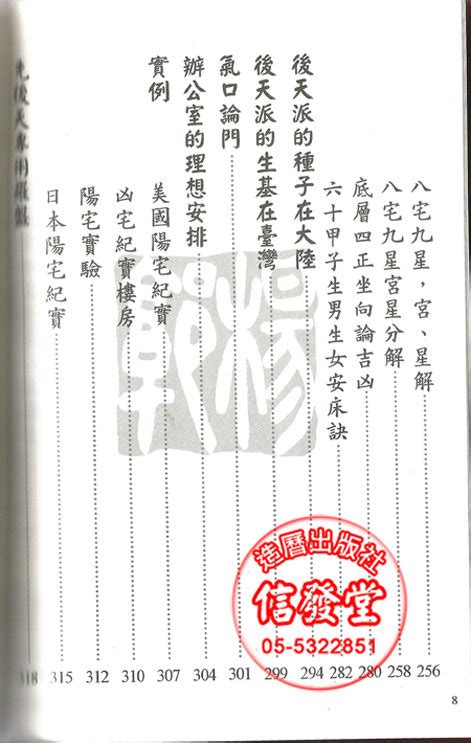 八宅九星，宮、星解 256
八宅九星宮星分解 258
底層四正坐向論吉凶 280
六十甲子生男生女安床訣 282
後天派的種子在大陸 294
後天派的生基在臺灣 299
氣口論門 301
辦公室的理想安排 304
實例
美國陽宅紀實 307
凶宅紀實樓房 310
陽宅實驗 312
日本陽宅紀實 315
先後天專用羅盤 318
造曆出版社
信發堂
05-5322851
8